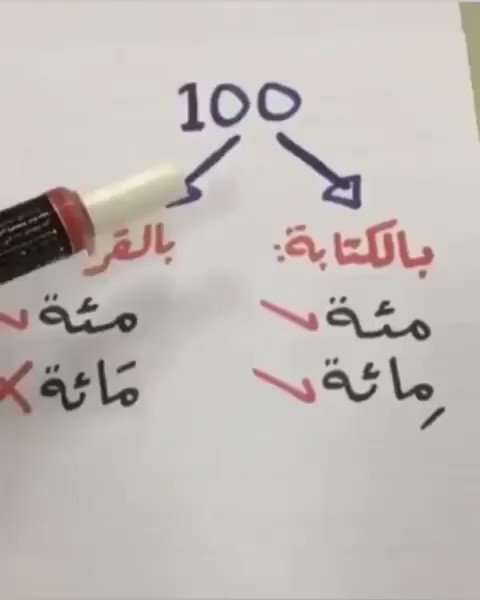 100
بالكتابة:
مئة
مِائة
بالقر
مئة
مَائة